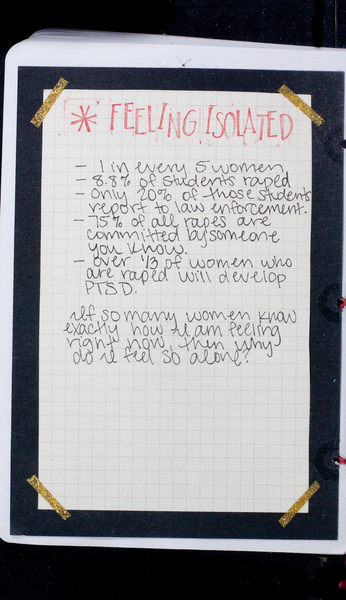 * FEELING ISOLATED
- 1 in every 5 women
- 8.8% of students raped
- Only 20% of those students
report to law enforcement.
- 75% of all rapes are
committed by someone
you know.
- Over 1/3 of women who
are raped will develop
PTSD.
If so many women know
exactly how I am feeling
right now, then why
do I feel so alone?